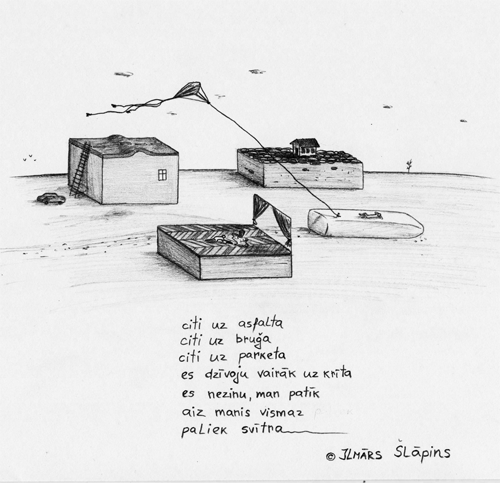 citi uz asfalta
citi uz bruģa
citi uz parketa
es dzīvoju vairāk uz krīta
es nezinu, man patīk
aiz manis vismaz
paliek svītra
© ILMĀRS ŠLĀPINS